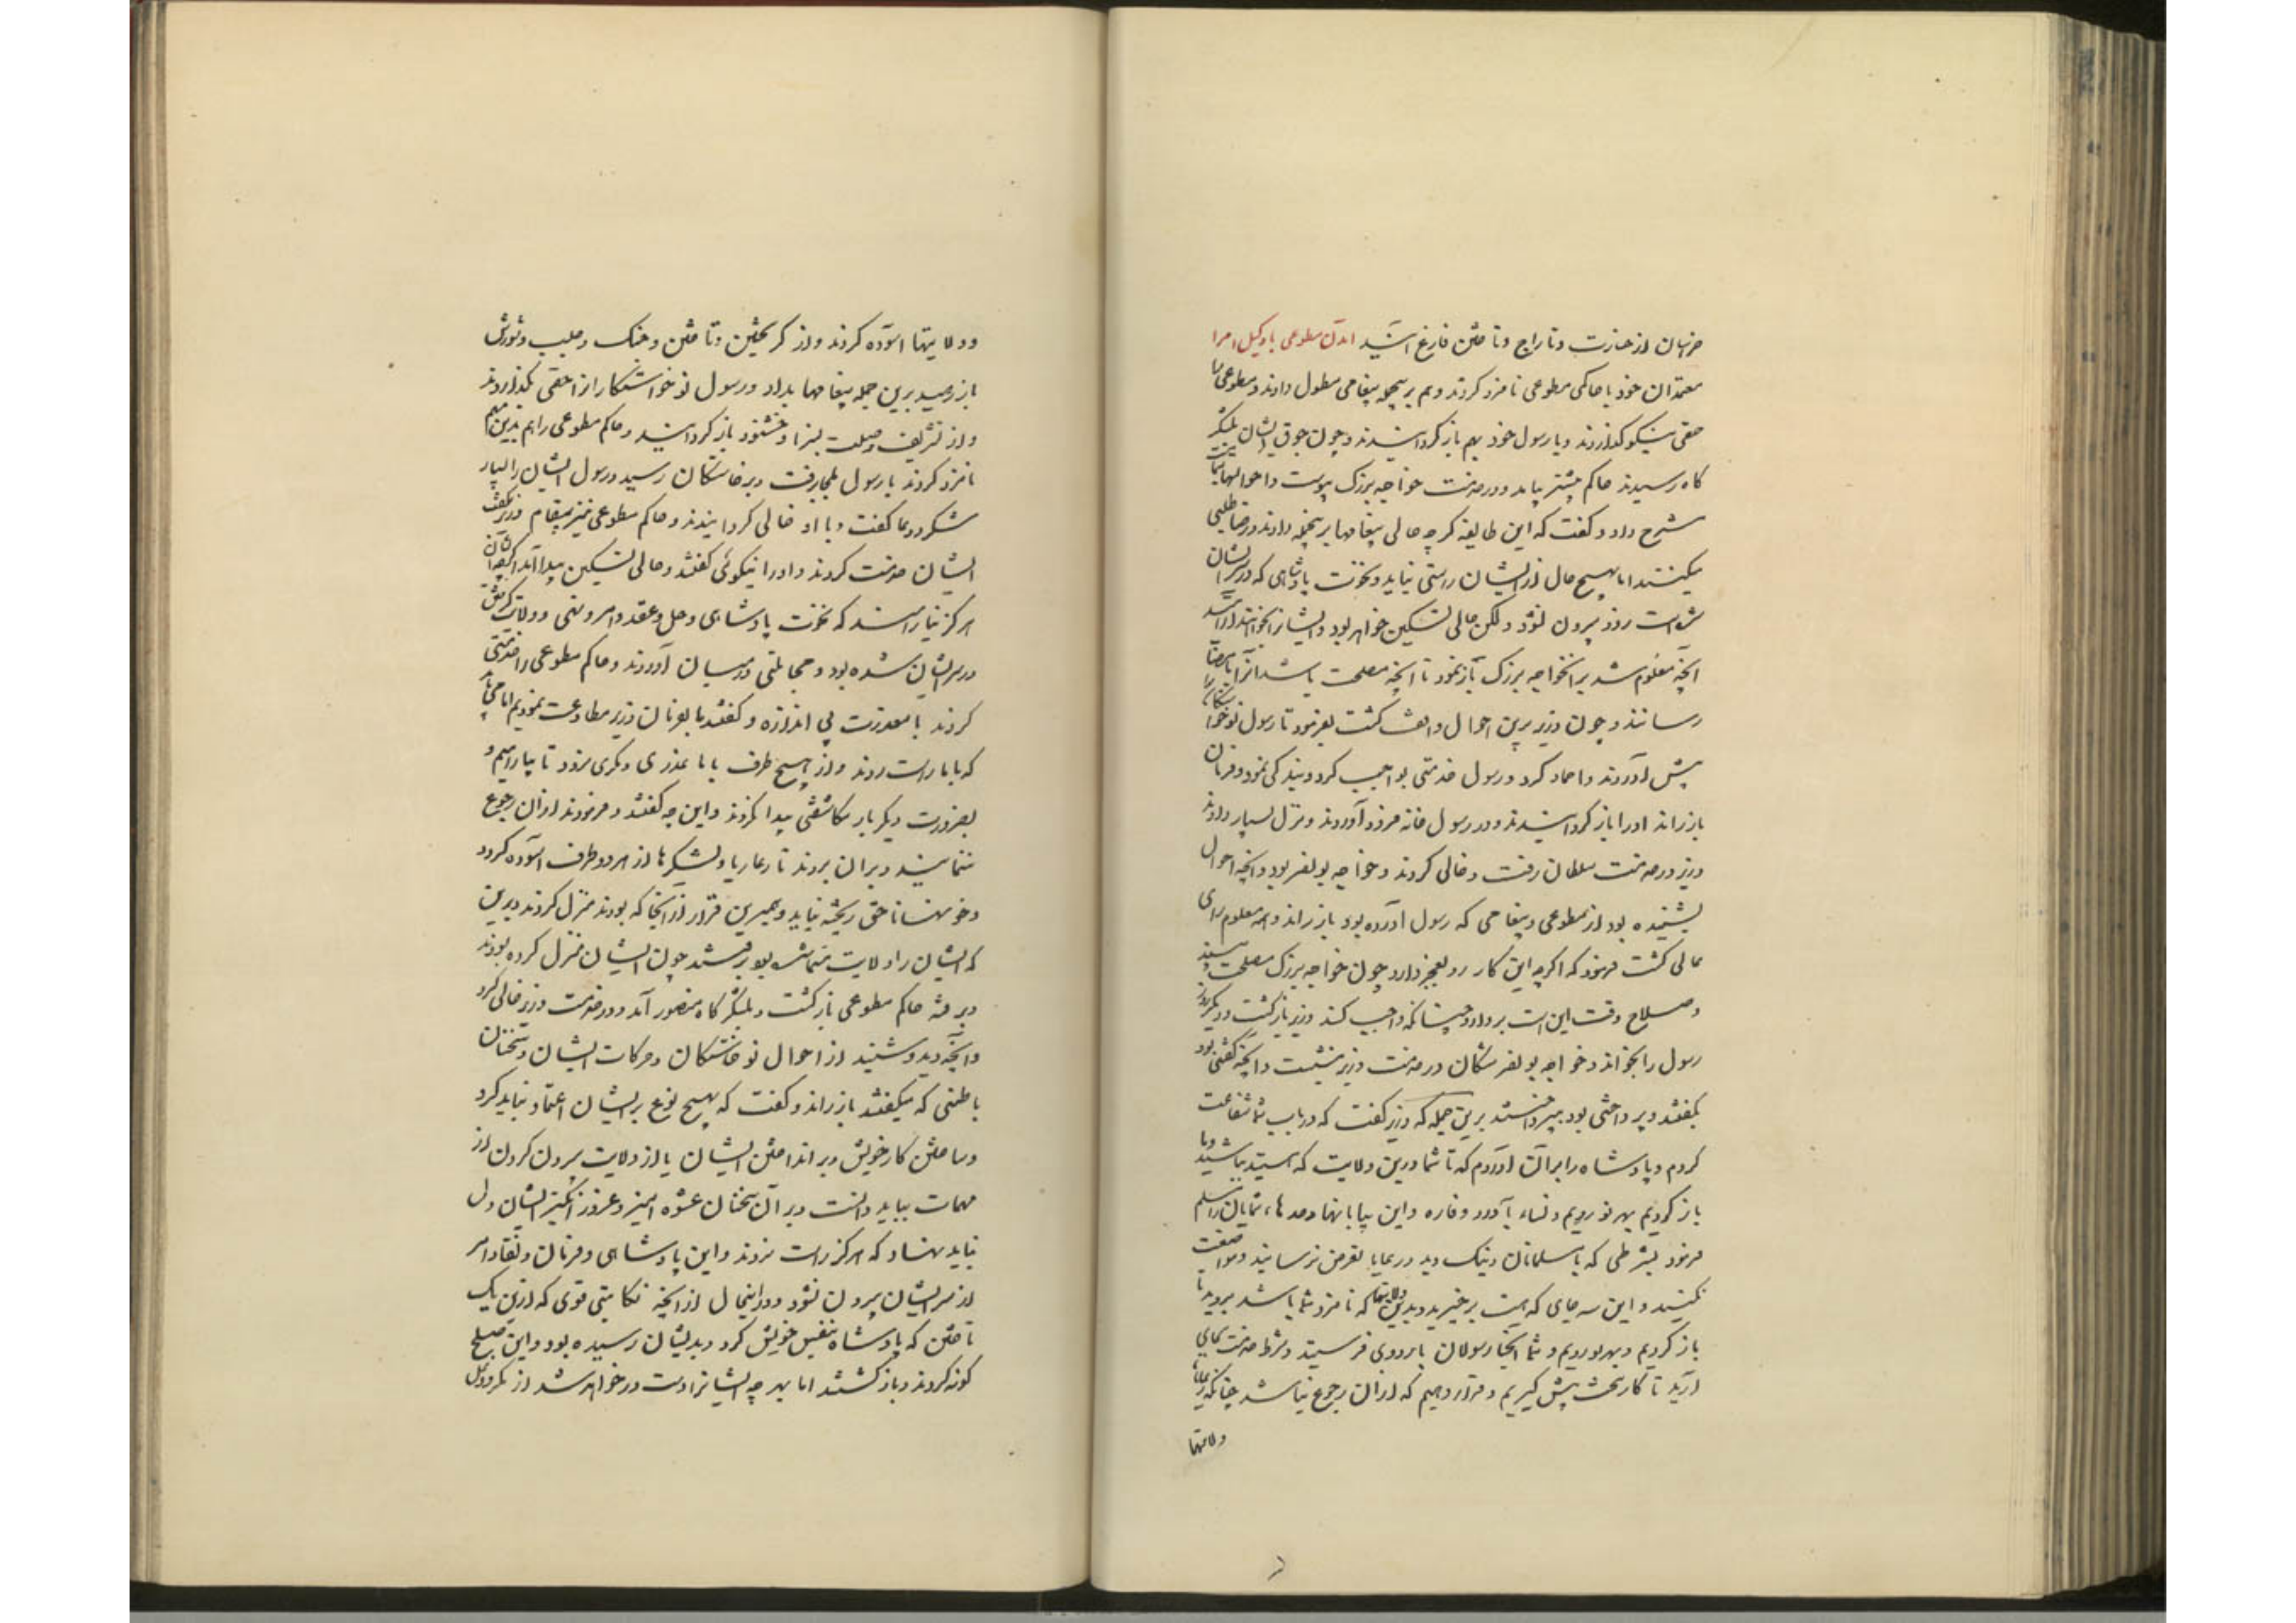 خزیان از حازت و تاراج و تاختن فارغ آیند امدن مطوعی با وکیل امرا
معتمدان خود با حاکمی مطوعی نامزد کردند و هم برینجمله پیغامی مطول دادند و مطوعی را
حقی نیکو گذاردند و با رسول خود بهم باز گردانیدند و چون جوق ایشان بلشکر
گاه رسیدند حاکم پیشتر بیامد و در خدمت خواجه بزرگ پیوست و احوالها بتمامت
شرح داد و گفت که این طایفه گرچه حالی پیغامها برینجمله دادند و رضا طلبی
میکنند اما بهیچ حال از ایشان راستی نیاید و نخوت پادشاهی که در سر ایشان
شده است زود بیرون نشود ولکن حالی تسکین خواهد بود و ایشان نخواهند آرامید
آنچه معلوم شد بر آنخواجه بزرگ بازنمود تا آنچه مصلحت باشد آنرا بامضا
رسانند و چون وزیر برین احوال واقف گشت بفرمود تا رسول نوخواستگان را
پیش آوردند و احماد کرد و رسول خدمتی بواجب کرد و بندگی نمود و فرمان
باز راند او را باز گردانیدند و در رسول خانه فرود آوردند و نزل بسیار دادند
وزیر در خدمت سلطان رفت و خالی کردند و خواجه بونصر بود و آنچه احوال
بشنیده بود از مطوعی و پیغامی که رسول آورده بود باز راند و همه معلوم رای
عالی گشت فرمود که اگرچه این کار روبعجز دارد چون خواجه بزرگ مصلحت بیند
و صلاح وقت این است بردارد چنانکه واجب کند وزیر بازگشت و دیگر روز
رسول را بخواند و خواجه بونصر مشکان در خدمت وزیر بنشست و آنچه گفتنی بود
بگفتند و پرداختنی بود بپرداختند برین جمله که وزیر گفت که در باب شما شفاعت
کردم و پادشاه را بر آن آوردم که تا شما درین ولایت که هستید بباشید و ما
باز گردیم بهرو رویم و نساء باورد و فاره و این بیابانها و حدها، شمایان را مسلم
فرمود بشرطی که با مسلمانان و نیک و بد و رعایا تعرض نرسانید و مواضعت
نکنید و این سه جای که هست برخیزید و بدین ولایتها که نامزد شما باشد بروید تا
باز گردیم و بهرو رویم و شما آنجا رسولان با ردوی فرستید و شرط خدمت بجای
آرید تا کاری سخت پیش گیریم و قرار دهیم که از آن رجوع نباشد چنانکه رعایا
ولایتها
و ولایتها آسوده گردند و از گریختن و تاختن و جنگ و جلب و شورش
باز رهید برین جمله پیغامها بداد و رسول نوخواستگان را حقی گذاردند
و از تشریف و صلت بسزا و خشنود باز گردانیدند و حاکم مطوعی را هم بدین مهم
نامزد کردند با رسول یکجا رفت و برخاستگان رسید و رسول ایشان را بسیار
شکر و دعا گفت و با او خالی گردانیدند و حاکم مطوعی نیز پیغام وزیر بگفت
ایشان خدمت کردند و او را نیکوئی گفتند و حالی تسکین پیدا آمد اگرچه ایشان
هرگز نیارامند که نخوت پادشاهی و حل و عقد و امر و نهی و ولایت گرفتن
در سر ایشان شده بود و مجاملتی در میان آوردند و حاکم مطوعی را خدمتی
کردند با معذرت بی اندازه و گفتند ما بفرمان وزیر مطاوعت نمودیم اما می باید
که با ما راست روند و از هیچ طرف با ما غدری و مکری نرود تا بیارامیم و
بضرورت دیگر بار مکاشفتی پیدا نکردند و این چه گفتند و فرمودند از آن رجوع
ننمایند و بر آن بروند تا رعایا و لشکرها از هر دو طرف آسوده گردد
و خونها ناحق ریخته نیاید و بهمین قرار از آنجا که بودند منزل کردند و برین
که ایشان را ولایت نامش بود برفتند چون ایشان منزل کرده بودند
و برفته حاکم مطوعی بازگشت و بلشکرگاه منصور آمد و در خدمت وزیر خالی کرد
و آنچه دید و شنید از احوال نوخاستگان و حرکات ایشان و سخنان
باطنی که میگفتند باز راند و گفت که بهیچ نوع بر ایشان اعتماد نباید کرد
و ساختن کار خویش و بر انداختن ایشان یا از ولایت بیرون کردن از
مهمات بباید دانست و بر آن سخنان عشوه آمیز و غرور انگیز ایشان دل
نباید نهاد که هرگز راست نروند و این پادشاهی و فرمان و نفاذ امر
از سر ایشان بیرون نشود و در اینحال از آنچه نکایتی قوی که ازین یک
تاختن که پادشاه بنفس خویش کرد و بدیشان رسیده بود و این صلح
گونه کردند و بازگشتند اما بهر چه ایشانرا دست در خواهد شد از مکر و دغل